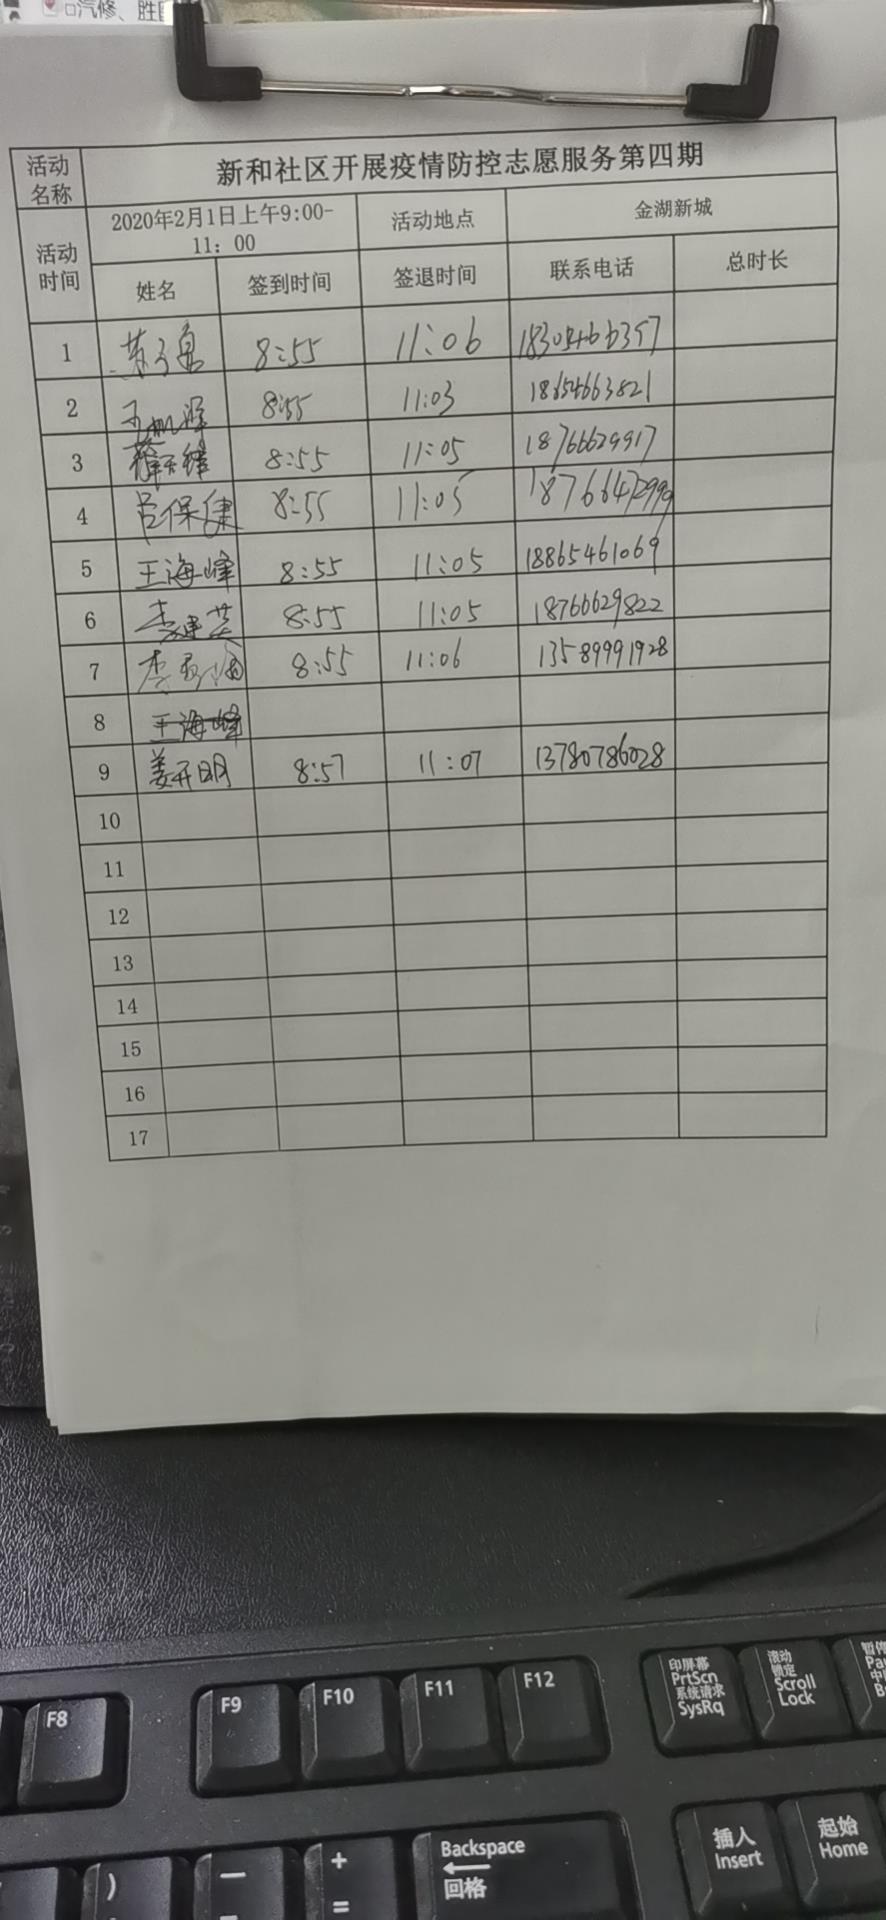 □汽修、胜
活动名称 新和社区开展疫情防控志愿服务第四期
活动时间 2020年2月1日上午9:00-11：00 活动地点 金湖新城
姓名 签到时间 签退时间 联系电话 总时长
1 8:55 11:06 18305466357
2 8:55 11:03 18654663821
3 8:55 11:05 18766629917
4 吕保健 8:55 11:05 18766472999
5 王海峰 8:55 11:05 18865461069
6 李建英 8:55 11:05 18766629822
7 8:55 11:06 13589991928
8 王海峰
9 姜开明 8:57 11:07 13780786028
10
11
12
13
14
15
16
17
F8 F9 F10 F11 F12 印屏幕 PrtScn 系统请求 SysRq 滚动锁定 Scroll Lock
) — + = Backspace 回格 插入 Insert 起始 Home